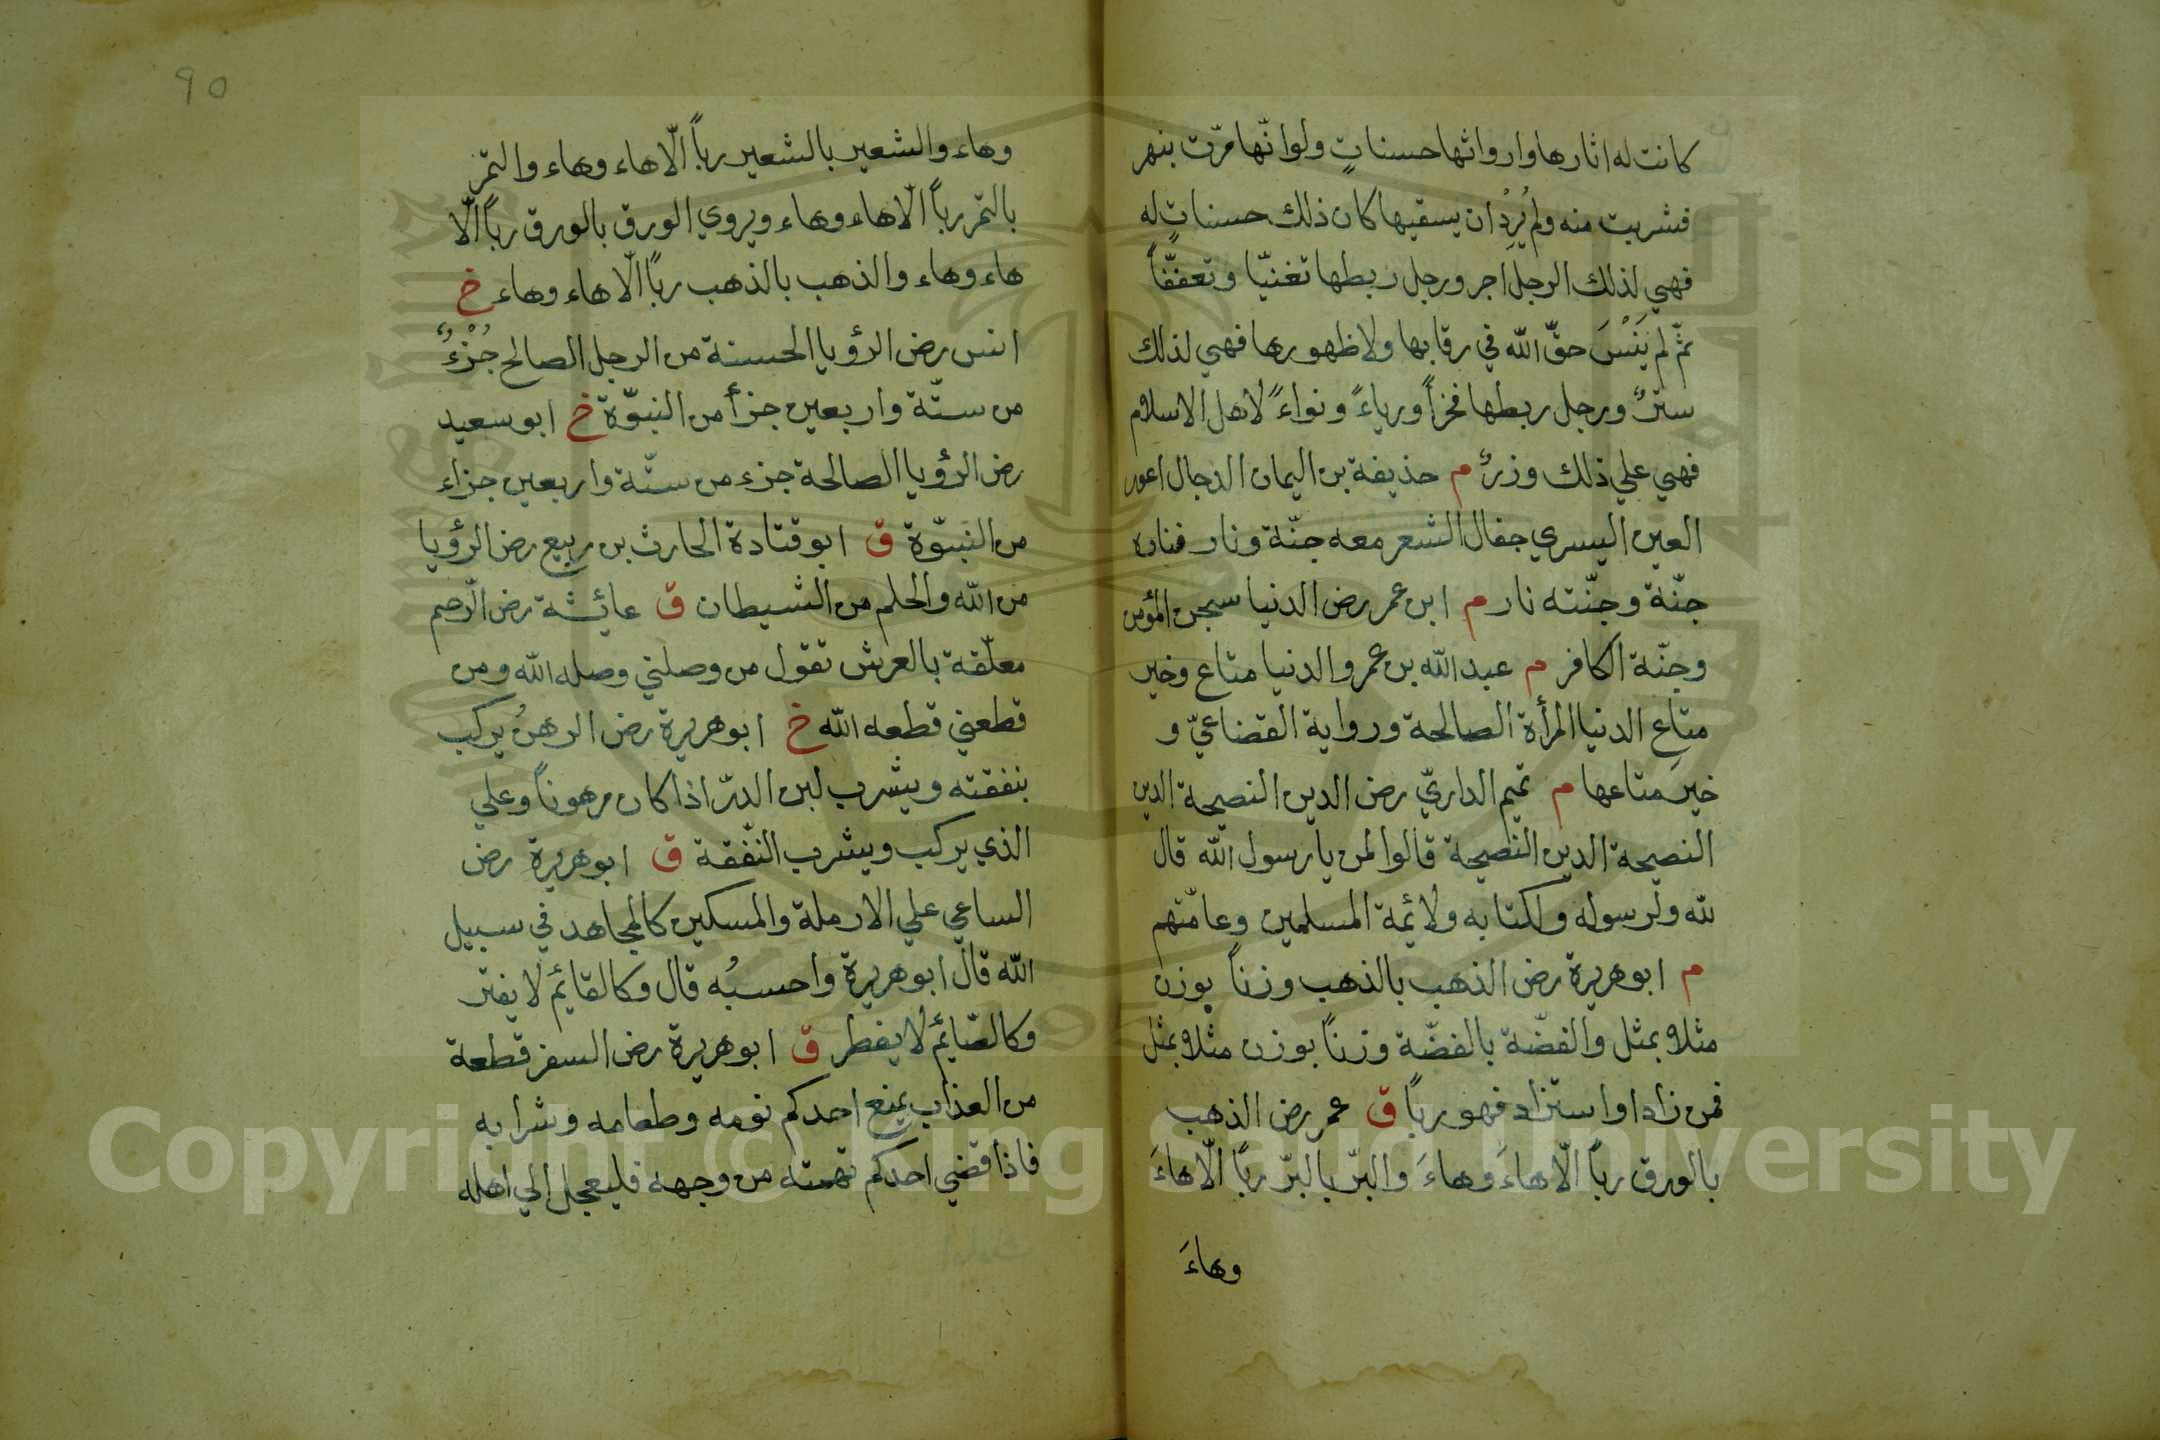 كانت له اثارها وارواثها حسناتٍ ولو انّها مرّت بنهر
فشربت منه ولم يُرِدْ ان يسقيها كان ذلك حسناتٍ له
فهي لذلك الرجل اجر ورجل ربطها تغنيّا وتعففّاً
ثمّ لم يَنْسَ حقّ اللّه في رقابها ولا ظهورها فهي لذلك
سترٌ ورجل ربطها فخراً ورياءً ونواءً لاهل الاسلام
فهي علي ذلك وزرٌ م حذيفة بن اليمان الدجال اعور
العين اليسري جفال الشعر معه جنّة ونار فناره
جنّة وجنّته نار م ابن عمر رض الدنيا سجن المؤمن
وجنّة الكافر م عبد اللّه بن عمرو الدنيا متاع وخير
متاعِ الدنيا المرأة الصالحة ورواية القضاعيّ و
خير متاعها م تميم الداريّ رض الدين النصيحة الدين
النصيحة الدين النصيحة قالوا لمن يا رسول اللّه قال
للّه ولرسوله ولكتابه ولائمة المسلمين وعامّتهم
م ابو هريرة رض الذهب بالذهب وزناً بوزن
مثلا بمثل والفضّة بالفضّة وزناً بوزن مثلا بمثل
فمن زاد او استزاد فهو رباً ق عمر رض الذهب
بالورق رباً الّا هاءَ وهاءَ والبرّ بالبرّ رباً الّا هاءَ
وهاءَ
90
وهاء والشعير بالشعير رباً الّا هاء وهاء والتمر
بالتمر رباً الّا هاء وهاء ويروي الورق بالورق رباً الّا
هاء وهاء والذهب بالذهب رباً الّا هاء وهاء خ
انس رض الرؤيا الحسنة من الرجل الصالح جُزْءٌ
من ستّة واربعين جزأ من النبوّة خ ابو سعيد
رض الرؤيا الصالحة جزء من ستّة واربعين جزاء
من النبوّة ق ابو قتادة الحارث بن ربيع رض الرؤيا
من اللّه والحلم من الشيطان ق عائشة رض الرّحم
معلّقة بالعرش تقول من وصلني وصله اللّه ومن
قطعني قطعه اللّه خ ابو هريرة رض الرهنُ يركب
بنفقته ويشرب لبن الدرّ اذا كان مرهوناً وعلي
الذي يركب ويشرب النّفقة ق ابو هريرة رض
الساعي علي الارملة والمسكين كالمجاهد في سبيل
اللّه قال ابو هريرة واحسبُه قال وكالقائم لا يفتر
وكالصّايم لا يفطر ق ابو هريرة رض السفر قطعة
من العذاب يمنع احدكم نومه وطعامه وشرابه
فاذا قضي احدكم نهمته من وجهه فليعجل الي اهله
Copyright © King Saud University
1957